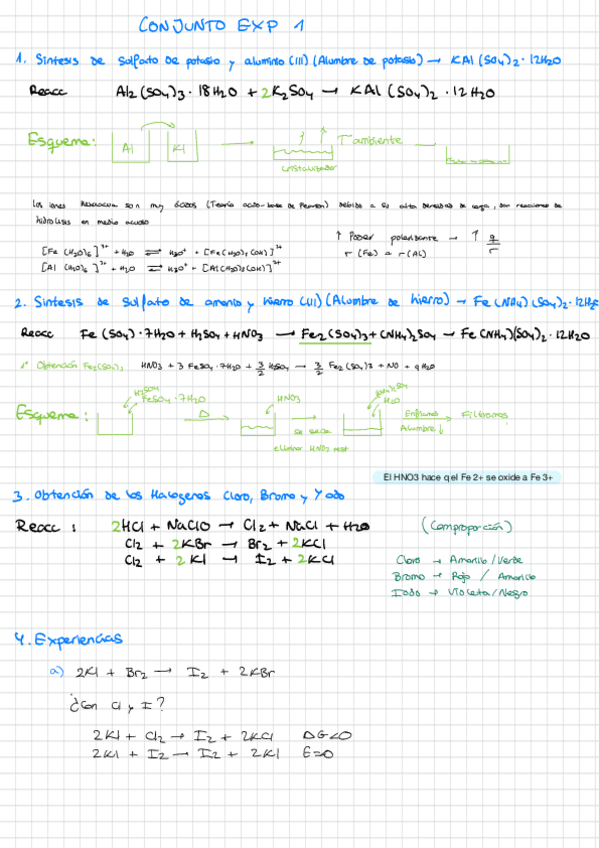 CONJUNTO EXP 1
1. Síntesis de sulfato de potasio y aluminio (III) (Alumbre de potasio) → KAl(SO4)2·12H2O
Reacc Al2(SO4)3·18H2O + 2K2SO4 → KAl(SO4)2·12H2O
Esquema: Al Kl T ambiente
cristalizador
los iones son muy ácidos (Teoría ácido-base de Pearson) debido a su alta densidad de carga, son reacciones de
hidrólisis en medio acuoso
↑ Poder polarizante → ↑ q/r
[Fe(H2O)6]3+ + H2O ⇌ H3O+ + [Fe(H2O)5(OH)]2+
r(Fe) = r(Al)
[Al(H2O)6]3+ + H2O ⇌ H3O+ + [Al(H2O)5(OH)]2+
2. Síntesis de sulfato de amonio y hierro (III) (Alumbre de hierro) → Fe(NH4)(SO4)2·12H2O
Reacc Fe(SO4)·7H2O + H2SO4 + HNO3 → Fe2(SO4)3 + (NH4)2SO4 → Fe(NH4)(SO4)2·12H2O
1º Obtención Fe2(SO4)3 HNO3 + 3 FeSO4·7H2O + 3/2 H2SO4 → 3/2 Fe2(SO4)3 + NO + 9H2O
Esquema: H2SO4 FeSO4·7H2O Δ HNO3 se seca (NH4)2SO4 H2O Enfriamos Alumbre ↓ Filtramos
eliminar HNO3 rest
El HNO3 hace q el Fe 2+ se oxide a Fe 3+
3. Obtención de los Halógenos Cloro, Bromo y Yodo
Reacc: 2HCl + NaClO → Cl2 + NaCl + H2O (Comproporción)
Cl2 + 2KBr → Br2 + 2KCl
Cl2 + 2KI → I2 + 2KCl
Cloro → Amarillo/Verde
Bromo → Rojo / Amarillo
Iodo → Violeta/Negro
4. Experiencias
a) 2KI + Br2 → I2 + 2KBr
¿Con Cl y I?
2KI + Cl2 → I2 + 2KCl ΔG<0
2KI + I2 → I2 + 2KI E=0